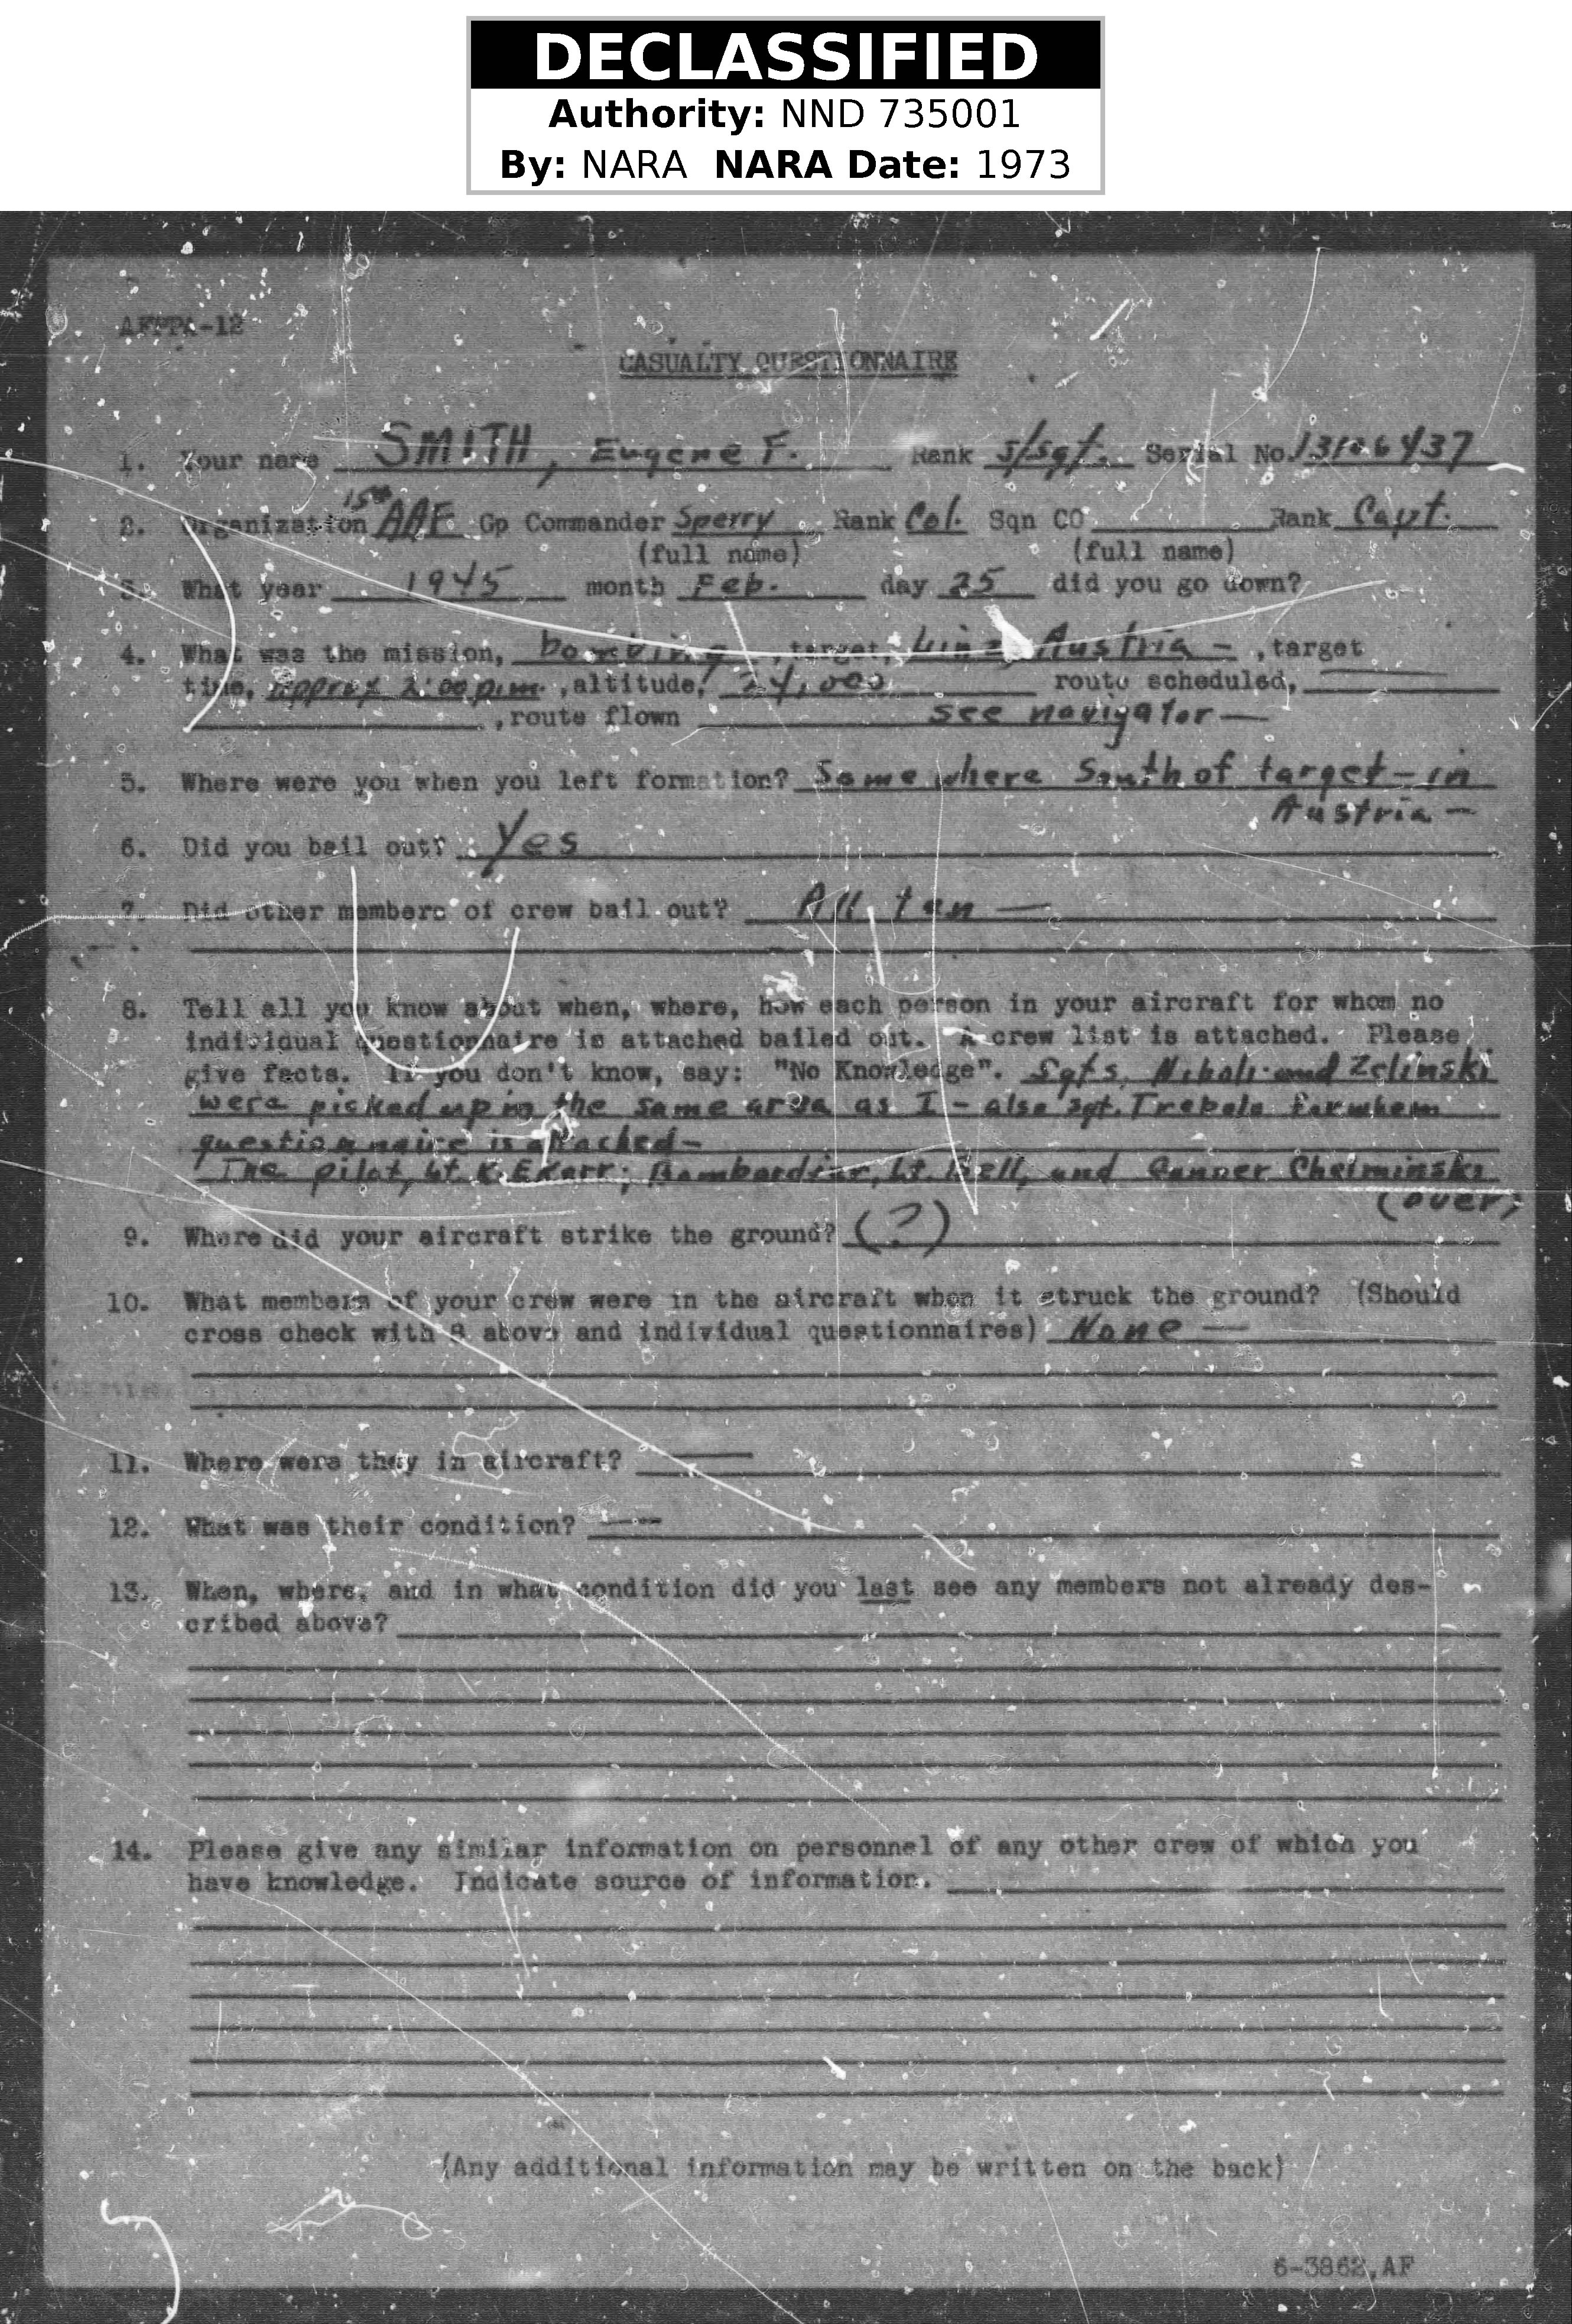 DECLASSIFIED
Authority: NND 735001
By: NARA NARA Date: 1973
AFPPA-12
CASUALTY QUESTIONNAIRE
1. Your name SMITH, Eugene F. Rank S/Sgt. Serial No.
15th
2. Organization AAF Gp Commander Sperry Rank Col. Sqn CO Rank Capt.
(full name) (full name)
3. What year 1945 month Feb. day 25 did you go down?
4. What was the mission, bombing, target, Linz Austria - , target
time, approx 2:00 p.m. , altitude, 24,000 route scheduled,
, route flown see navigator —
5. Where were you when you left formation? Some where South of target - in
Austria —
6. Did you bail out? Yes
7. Did other members of crew bail out? All ten —
8. Tell all you know about when, where, how each person in your aircraft for whom no
individual questionnaire is attached bailed out. A crew list is attached. Please
give facts. If you don't know, say: "No Knowledge". Sgts. and Zelinski
were picked up in the same area as I - also Sgt. Trepole for whom
questionnaire is attached -
The pilot, Lt. K. ; Bombardier, Lt. Bell, and Gunner Chelminski
(over)
9. Where did your aircraft strike the ground? (?)
10. What members of your crew were in the aircraft when it struck the ground? (Should
cross check with 8 above and individual questionnaires) None —
11. Where were they in aircraft? —
12. What was their condition? —
13. When, where, and in what condition did you last see any members not already des-
cribed above?
14. Please give any similar information on personnel of any other crew of which you
have knowledge. Indicate source of information.
(Any additional information may be written on the back)
6-3862,AF